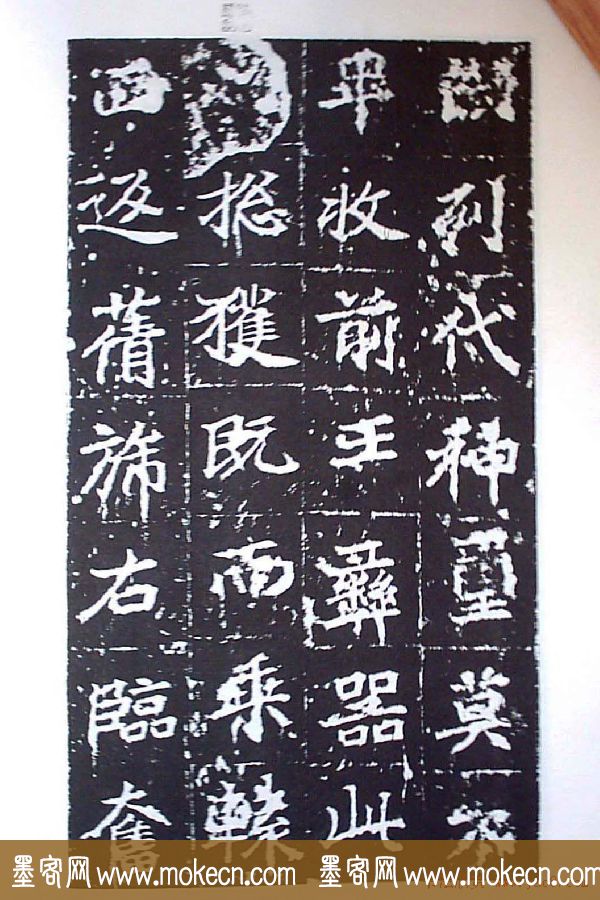 列代神璽莫不
畢收前王彝器此
揔獲既而乘轅
西返蒨旆右臨奮
墨客网 www.mokecn.com 墨客网 www.mokecn.com